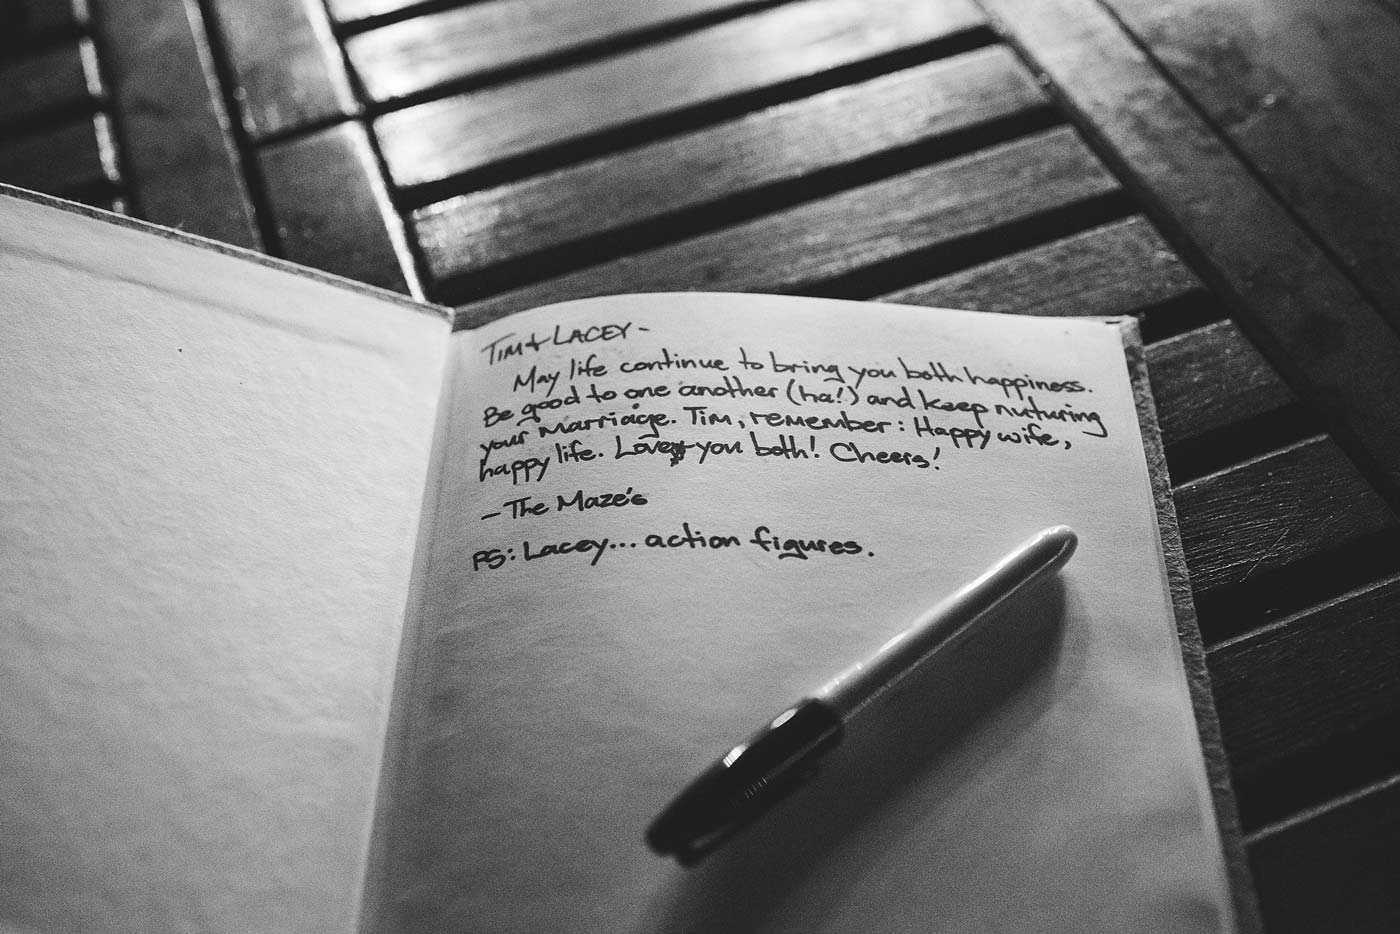 TIM & LACEY-
May life continue to bring you both happiness.
Be good to one another (ha!) and keep nuturing
your marriage. Tim, remember: Happy wife,
happy life. Love you both! Cheers!
- The Maze's
PS: Lacey... action figures.